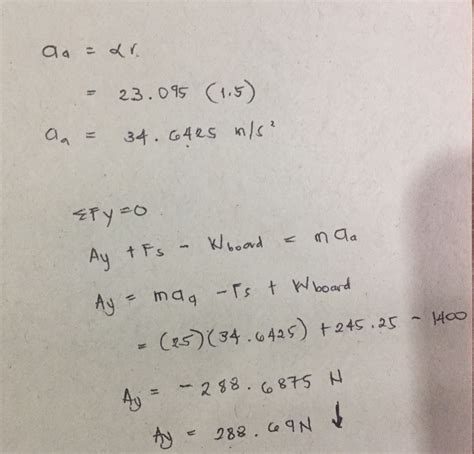 aa = αr.
= 23.095 (1.5)
aa = 34.6425 m/s²
ΣFy=0
Ay + Fs - Wboard = maa
Ay = maa - Fs + Wboard
= (25)(34.6425) + 245.25 - 1400
Ay = - 288.6875 N
Ay = 288.69N ↓